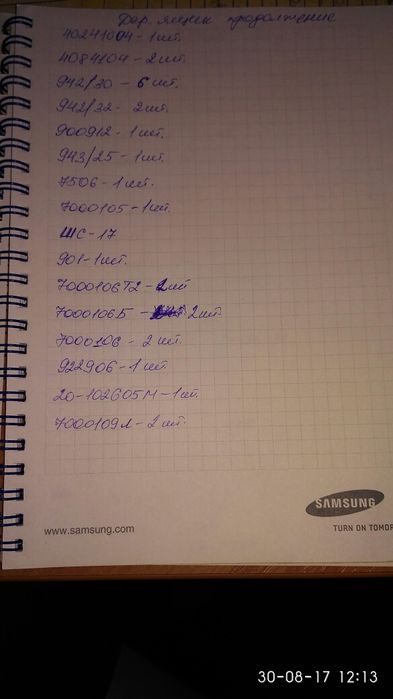 Дер. ящик продолжение
40241004 - 1 шт.
4084104 - 2 шт.
942/30 - 6 шт.
942/32 - 2 шт.
900912 - 1 шт.
943/25 - 1 шт.
7506 - 1 шт.
7000105 - 1 шт.
ШС - 17
901 - 1 шт.
7000106Т2 - шт
7000106Б - 2 шт.
7000106 - 2 шт.
922906 - 1 шт.
20-102605М - 1 шт.
7000109Л - 2 шт.
SAMSUNG
www.samsung.com
TURN ON TOMOR
30-08-17 12:13